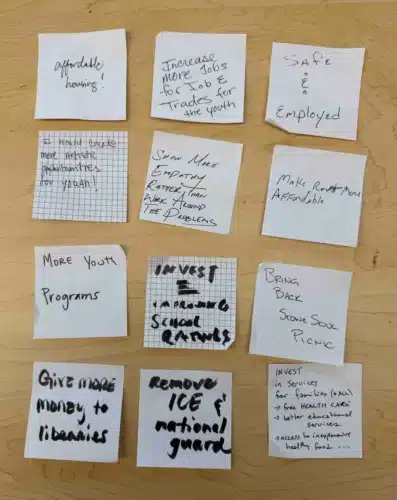 affordable
housing!
Increase
More Jobs
for Job &
Trades for
the youth
SAFE
&
Employed
I would
more artistic
opportunities
for youth!
Show More
Empathy
Rather Than
Work Around
The Problems
Make Rent More
Affordable
More Youth
Programs
INVEST
IN
IMPROVING
School
RATINGS
Bring
Back
Stone Soul
Picnic
Give more
money to
libraries
Remove
ICE &
national
guard
INVEST
in Services
for families
→ free HEALTH CARE
→ better educational
services
→ access to inexpensive
healthy food ...